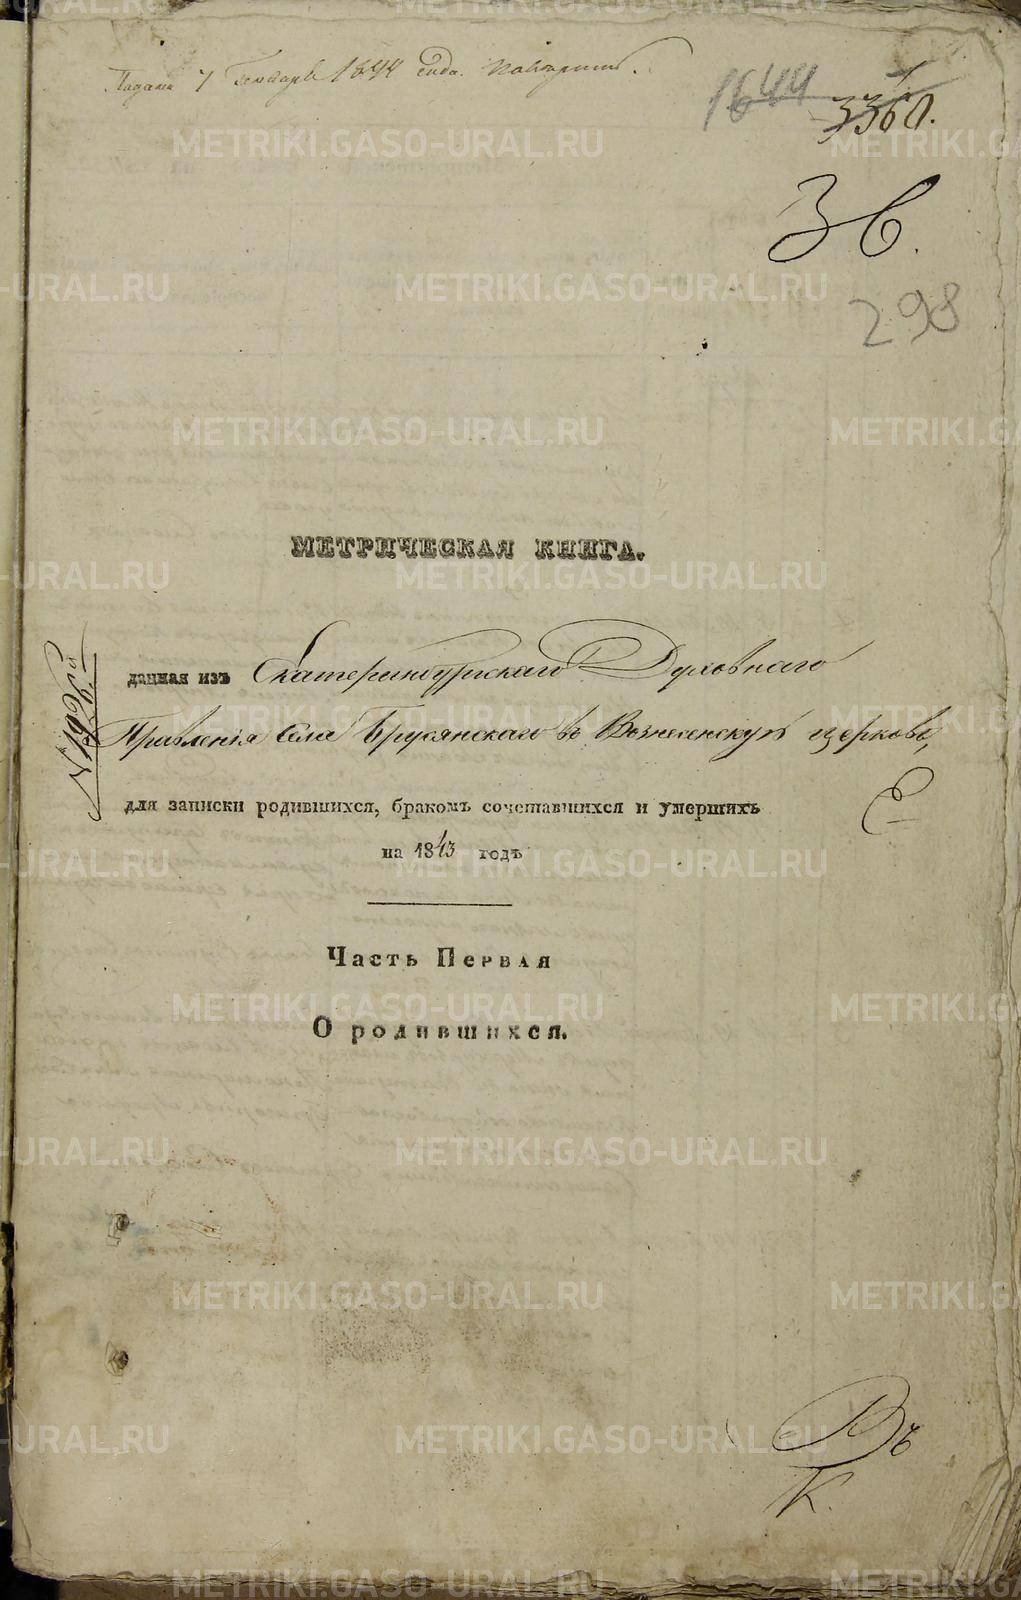 7 Генваря 1844 года.
1644
3360.
3в.
298
МЕТРИЧЕСКАЯ КНИГА.
данная изъ Екатеринбургскаго Духовнаго
Правленія села Брусянскаго въ Вознесенскую церковь,
для записки родившихся, бракомъ сочетавшихся и умершихъ
на 1843 годъ
Часть Первая
О родившихся.
METRIKI.GASO-URAL.RU